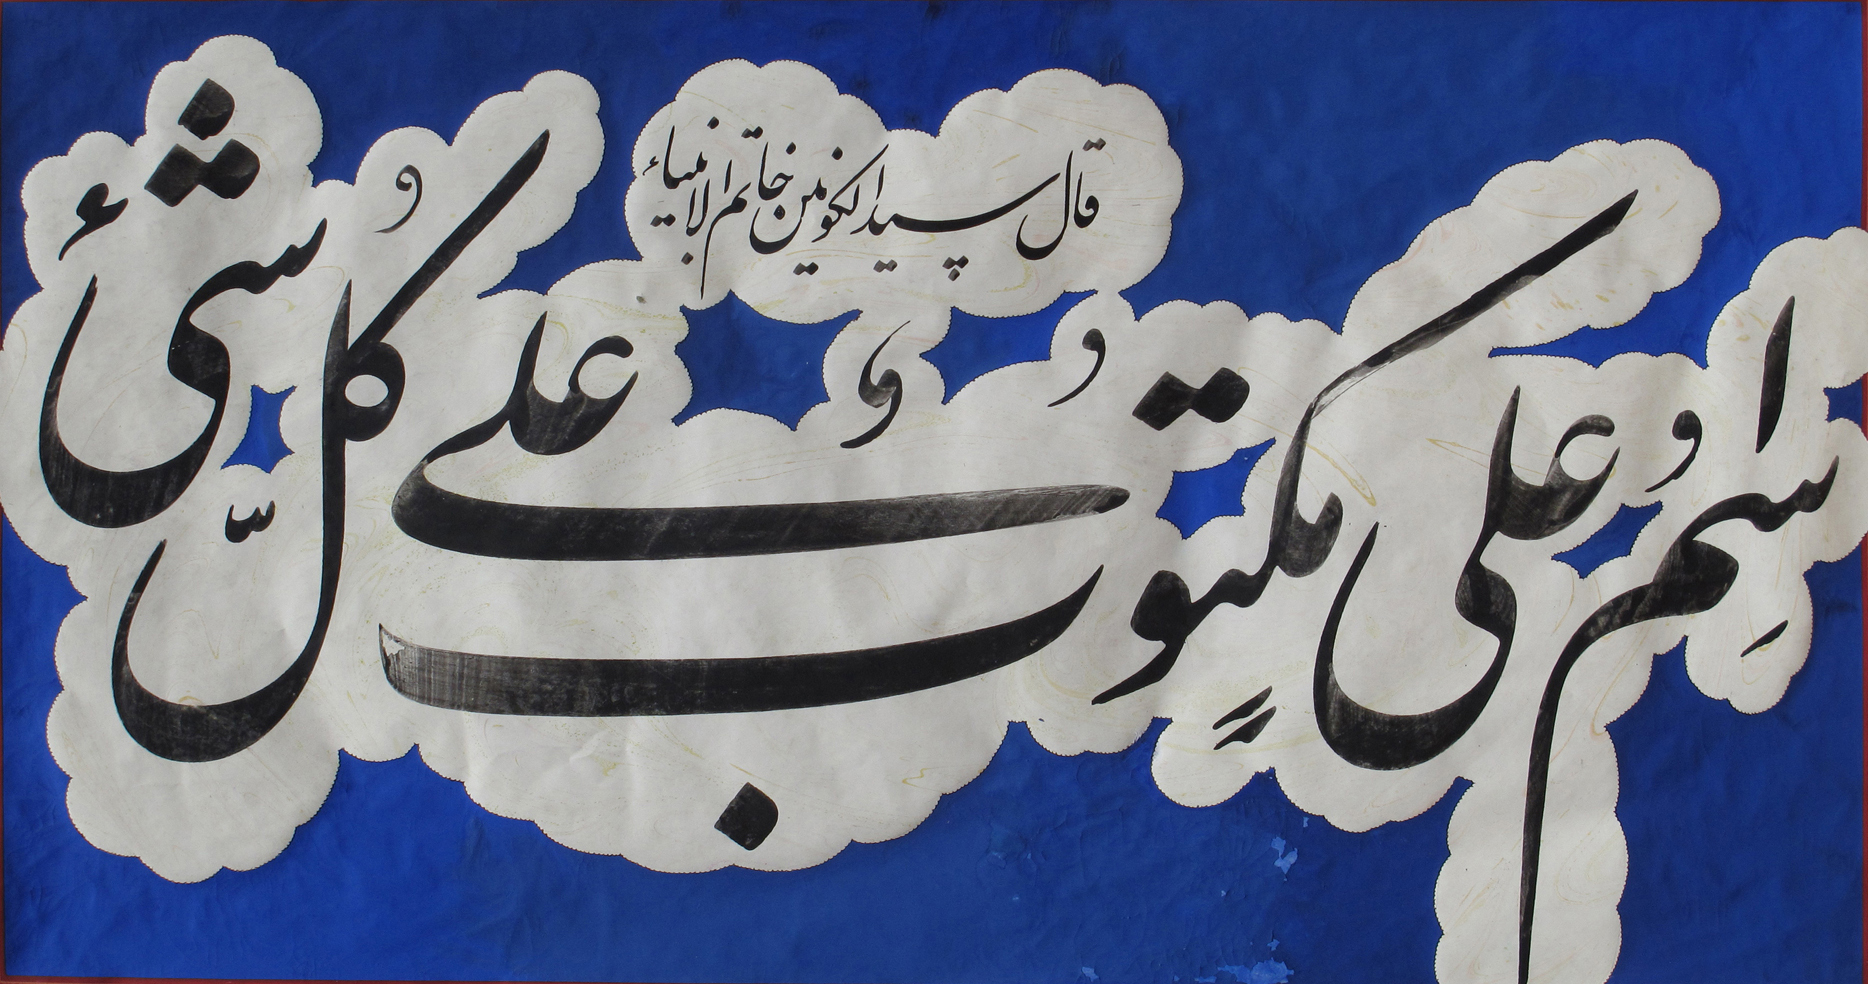 قال سید الکونین خاتم الانبیاء
اسم علی مکتوب علی کلّ شیء